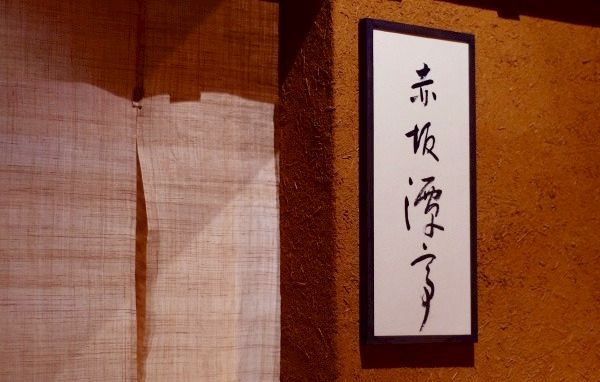 赤坂潭亭